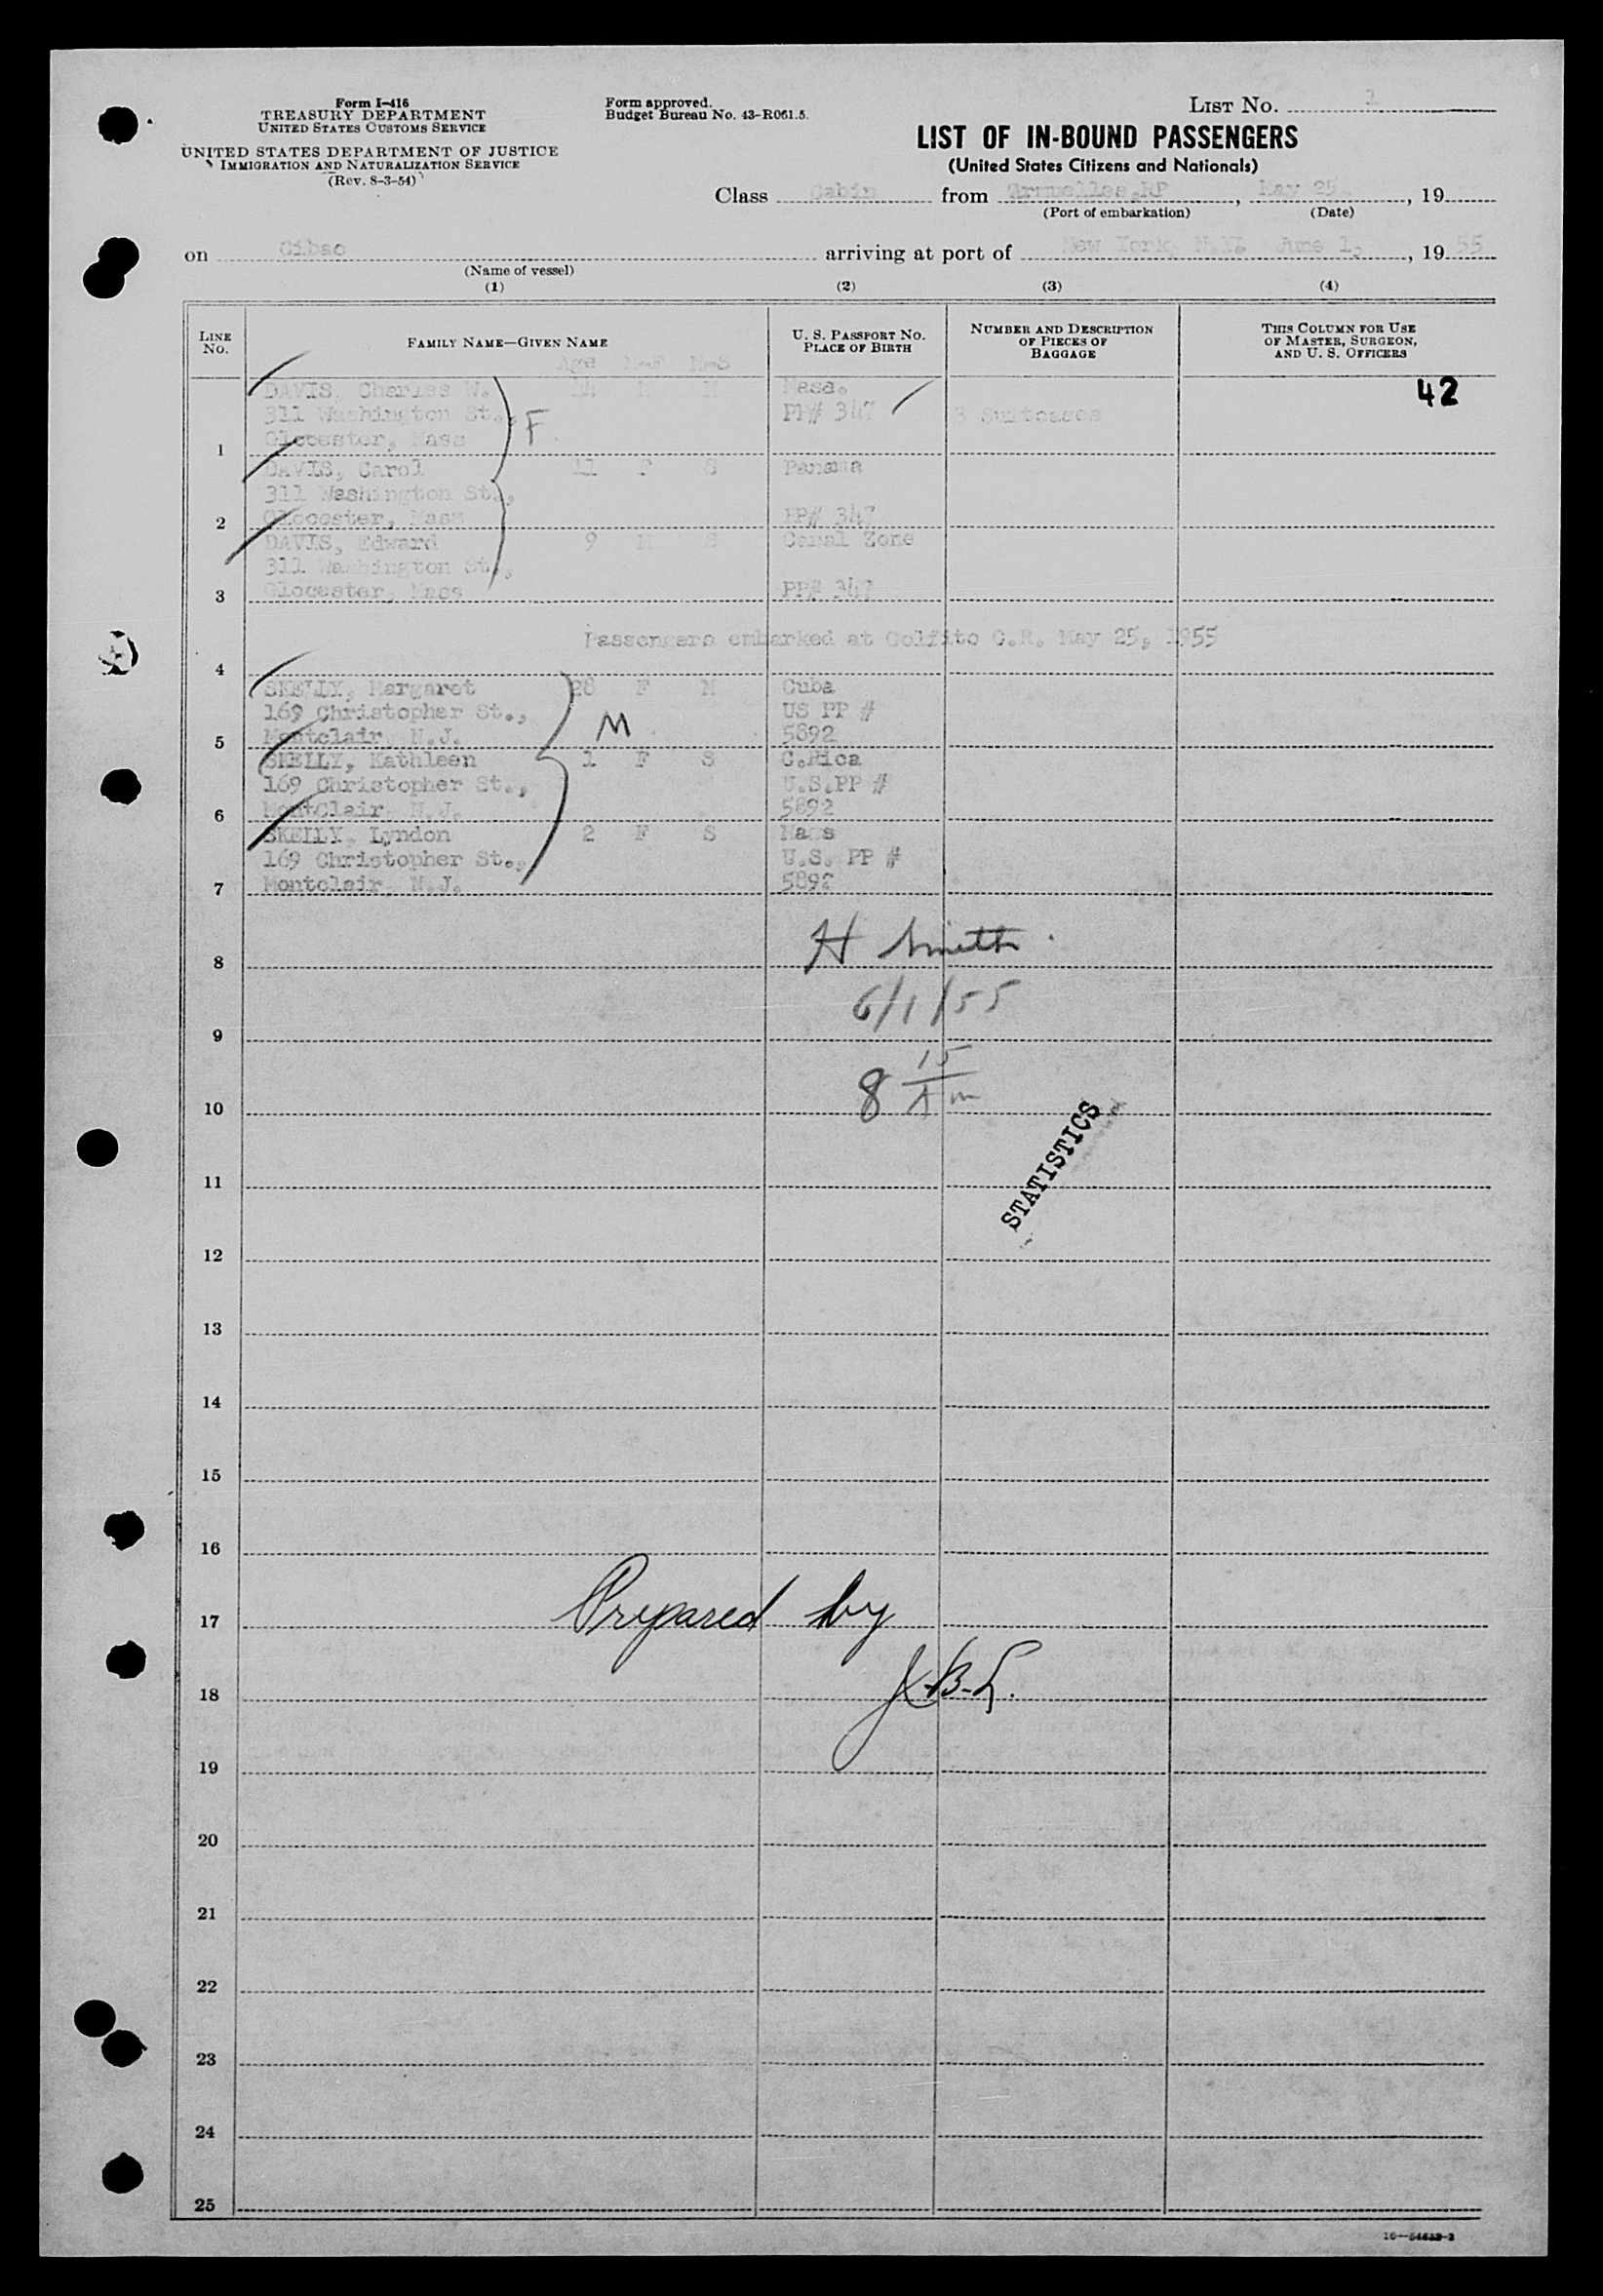 Form I-416
TREASURY DEPARTMENT
UNITED STATES CUSTOMS SERVICE
UNITED STATES DEPARTMENT OF JUSTICE
IMMIGRATION AND NATURALIZATION SERVICE
(Rev. 8-3-54)
Form approved.
Budget Bureau No. 43-R061.5.
LIST No.
LIST OF IN-BOUND PASSENGERS
(United States Citizens and Nationals)
Class Cabin from , May 25, 19
(Port of embarkation) (Date)
on Cibao arriving at port of New York N.Y. June 1, 1955
(Name of vessel)
(1) (2) (3) (4)
LINE No. FAMILY NAME—GIVEN NAME U. S. PASSPORT No. PLACE OF BIRTH NUMBER AND DESCRIPTION OF PIECES OF BAGGAGE THIS COLUMN FOR USE OF MASTER, SURGEON, AND U. S. OFFICERS
Age M-F M-S
DAVIS, Charles W. M M Mass. 42
311 Washington St., F PP# 347 3 Suitcases
1 Glocester, Mass
DAVIS, Carol 11 F S Panama
311 Washington St.,
2 Glocester, Mass PP# 347
DAVIS, Edward 9 M S Canal Zone
311 Washington St.,
3 Glocester, Mass PP# 347
Passengers embarked at Golfito C.R. May 25, 1955
4
SKELLY, Margaret 28 F M Cuba
169 Christopher St., M US PP #
5 Montclair, N.J. 5892
SKELLY, Kathleen 1 F S C.Rica
169 Christopher St., U.S.PP #
6 MontClair, N.J. 5892
SKELLY, Lyndon 2 F S Mass
169 Christopher St., U.S. PP #
7 Montclair, N.J. 5892
H Smith
8
6/1/55
9
8 15 Am
10
STATISTICS
11
12
13
14
15
16
17 Prepared by
18 J.B.L.
19
20
21
22
23
24
25